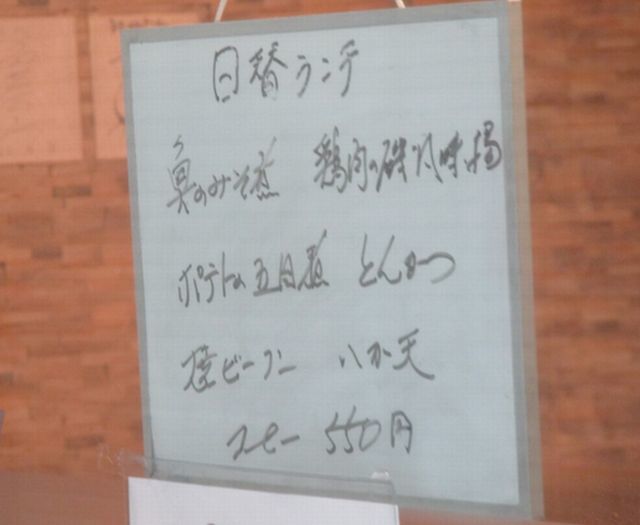 日替ランチ
のみそ煮 鶏肉の磯風味揚
ポテトの五目煮 とんかつ
焼ビーフン いか天
コーヒー 550円